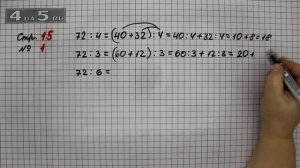 4-A-5.RU
Стр. 15
№ 1
72 : 4 = (40 + 32) : 4 = 40 : 4 + 32 : 4 = 10 + 8 = 18
72 : 3 = (60 + 12) : 3 = 60 : 3 + 12 : 3 = 20 +
72 : 6 =